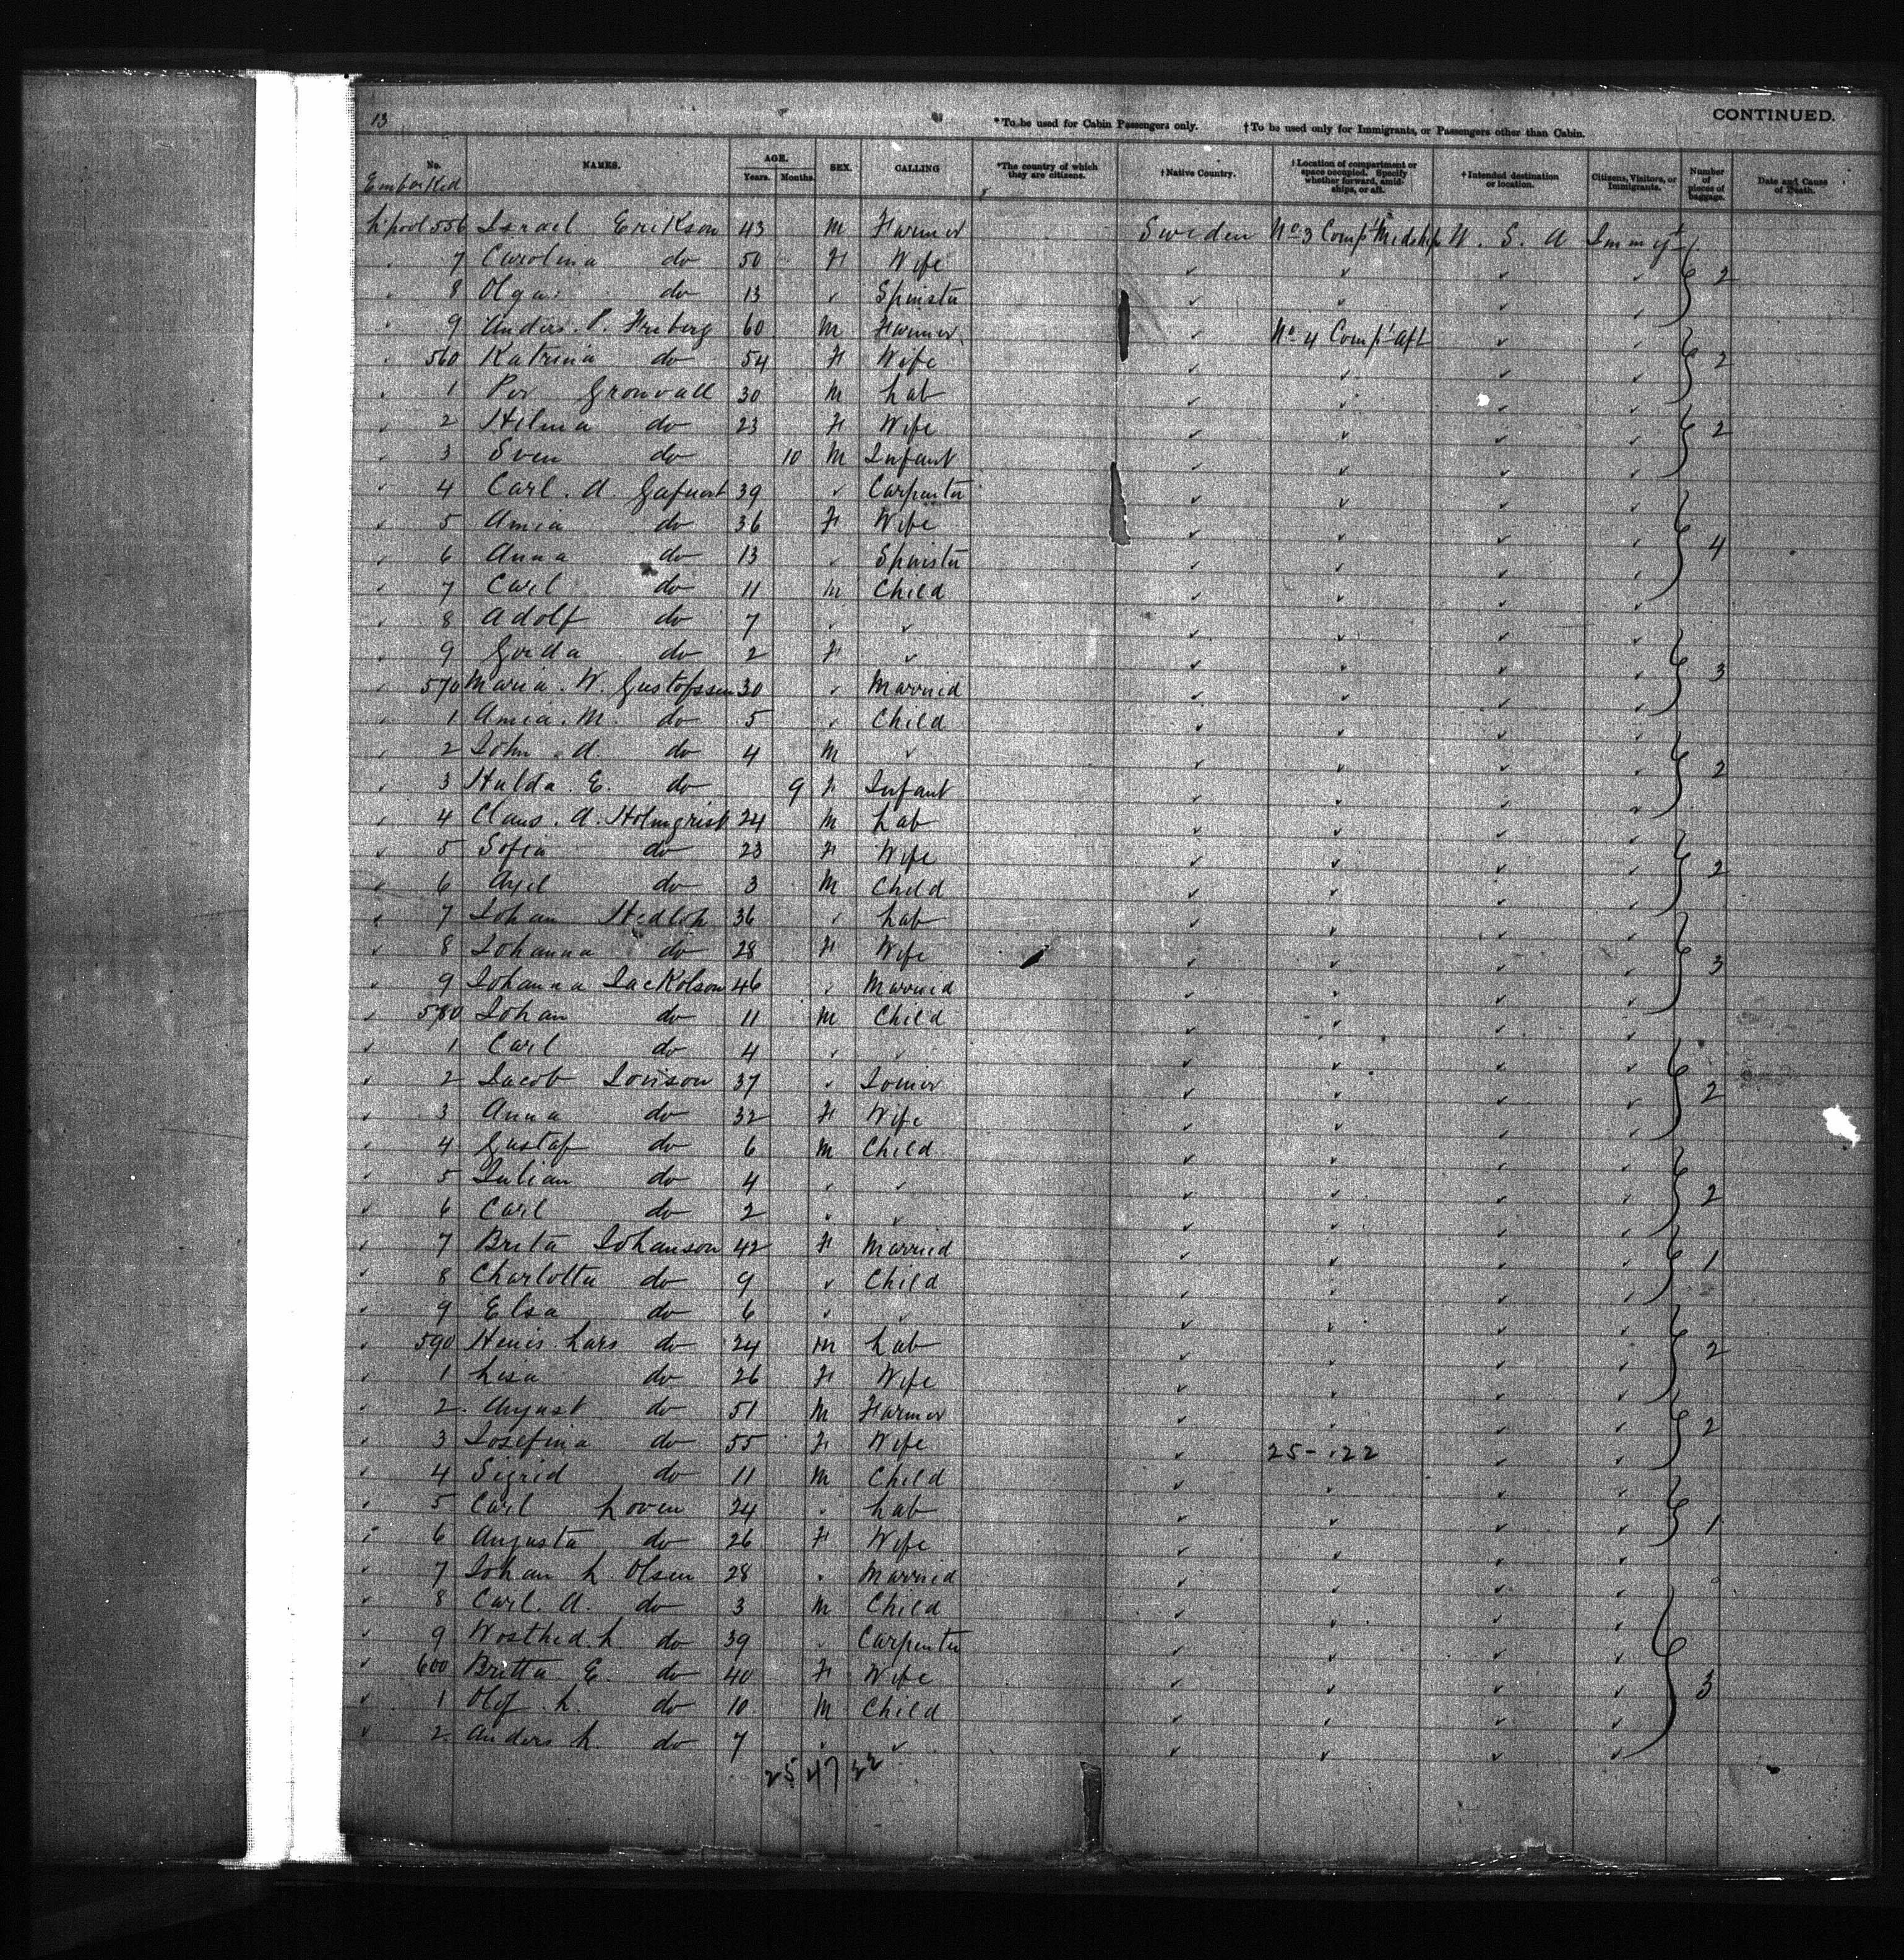 13
*To be used for Cabin Passengers only. †To be used only for Immigrants, or Passengers other than Cabin. CONTINUED.
No. NAMES. AGE. Years. Months. SEX. CALLING *The country of which they are citizens. †Native Country. †Location of compartment or space occupied. Specify whether forward, amidships, or aft. †Intended destination or location. Citizens, Visitors, or Immigrants. Number of pieces of baggage. Date and Cause of Death.
Embarked
L'pool 556 Israel Erikson 43 M Farmer Sweden No 3 Compt Midship U. S. A Immigt
7 Carolina do 50 F Wife 2
8 Olga do 13 ✓ Spinster
9 Anders. P. Friberg 60 M Farmer No 4 Compt aft
560 Katrina do 54 F Wife 2
1 Per Gronvall 30 M Lab
2 Hilma do 23 F Wife 2
3 Sven do 10 M Infant
4 Carl. A. 39 ✓ Carpenter
5 Amia do 36 F Wife
6 Anna do 13 ✓ Spinster 4
7 Carl do 11 M Child
8 Adolf do 7 ✓ ✓
9 Gerda do 2 F ✓ 3
570 Maria. W. Gustafsson 30 ✓ Married
1 Amia. M. do 5 ✓ Child
2 John. A. do 4 M ✓ 2
3 Hulda. E. do 9 F Infant
4 Claus. A. Holmqrist 24 M Lab
5 Sofia do 23 F Wife 2
6 Axel do 3 M Child
7 Johan Hedlof 36 ✓ Lab
8 Johanna do 28 F Wife 3
9 Johanna Jackolson 46 ✓ Married
580 Johan do 11 M Child
1 Carl do 4 ✓ ✓
2 Jacob Jonson 37 ✓ Joiner 2
3 Anna do 32 F Wife
4 Gustaf do 6 M Child
5 Julian do 4 ✓ ✓ 2
6 Carl do 2 ✓ ✓
7 Brita Johanson 42 F Married 1
8 Charlotta do 9 ✓ Child
9 Elsa do 6 ✓ ✓
590 Lars do 24 M Lab 2
1 Lisa do 26 F Wife
2 August do 51 M Farmer 2
3 Josefina do 55 F Wife 25-22
4 Sigrid do 11 M Child
5 Carl Loven 24 ✓ Lab 1
6 Augusta do 26 F Wife
7 Johan L. Olsen 28 ✓ Married
8 Carl. A. do 3 M Child
9 L. do 39 ✓ Carpenter
600 Britta E. do 40 F Wife 3
1 Olof. L. do 10 M Child
2 Anders L. do 7 ✓ ✓
25 47 22